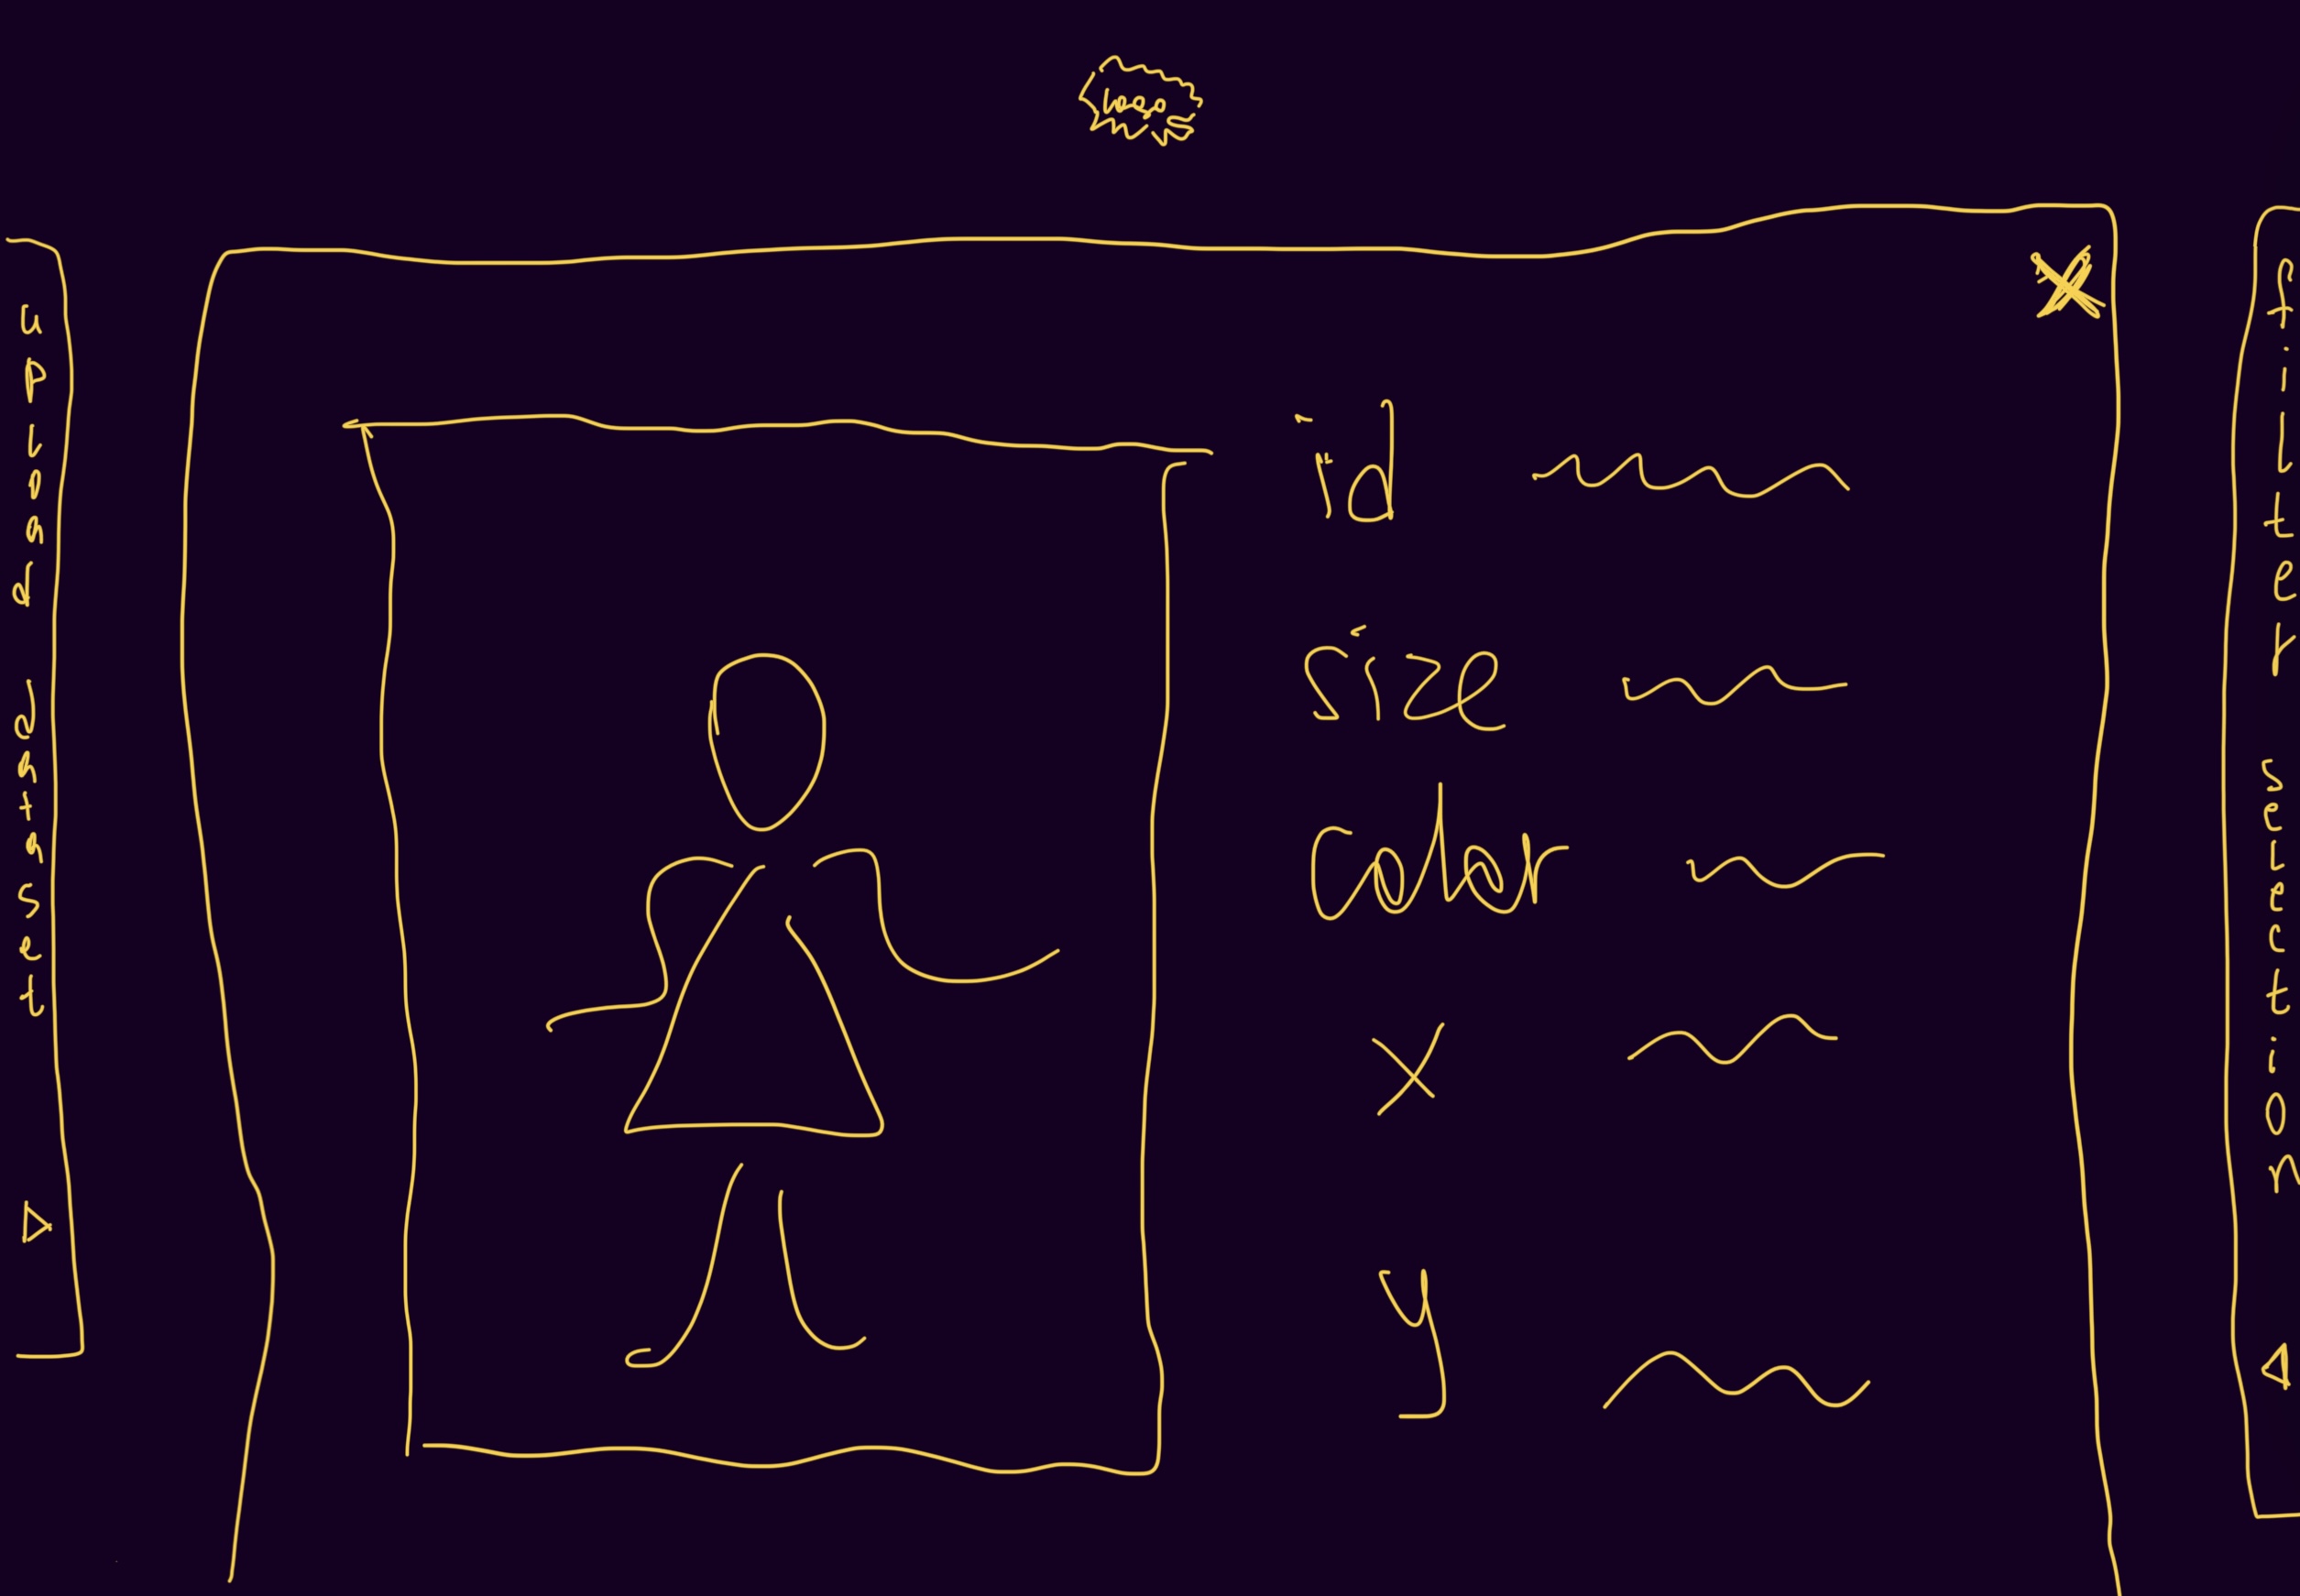 logo
upload dataset
id
size
color
x
y
filter selection